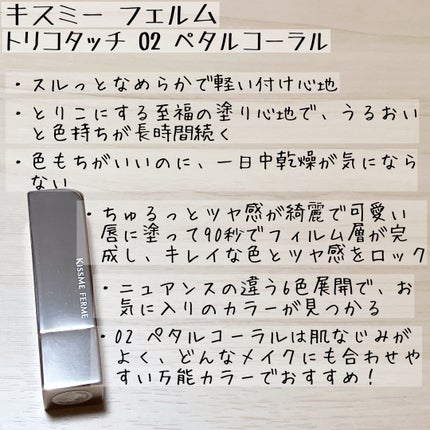 キスミー フェルム
トリコタッチ 02 ペタルコーラル
・スルっとなめらかで軽い付け心地
・とりこにする至福の塗り心地で、うるおい
と色持ちが長時間続く
・色もちがいいのに、一日中乾燥が気になら
ない
・ちゅるっとツヤ感が綺麗で可愛い
唇に塗って90秒でフィルム層が完
成し、キレイな色とツヤ感をロック
・ニュアンスの違う6色展開で、お
気に入りのカラーが見つかる
・02 ペタルコーラルは肌なじみが
よく、どんなメイクにも合わせや
すい万能カラーでおすすめ！
KISSME FERME